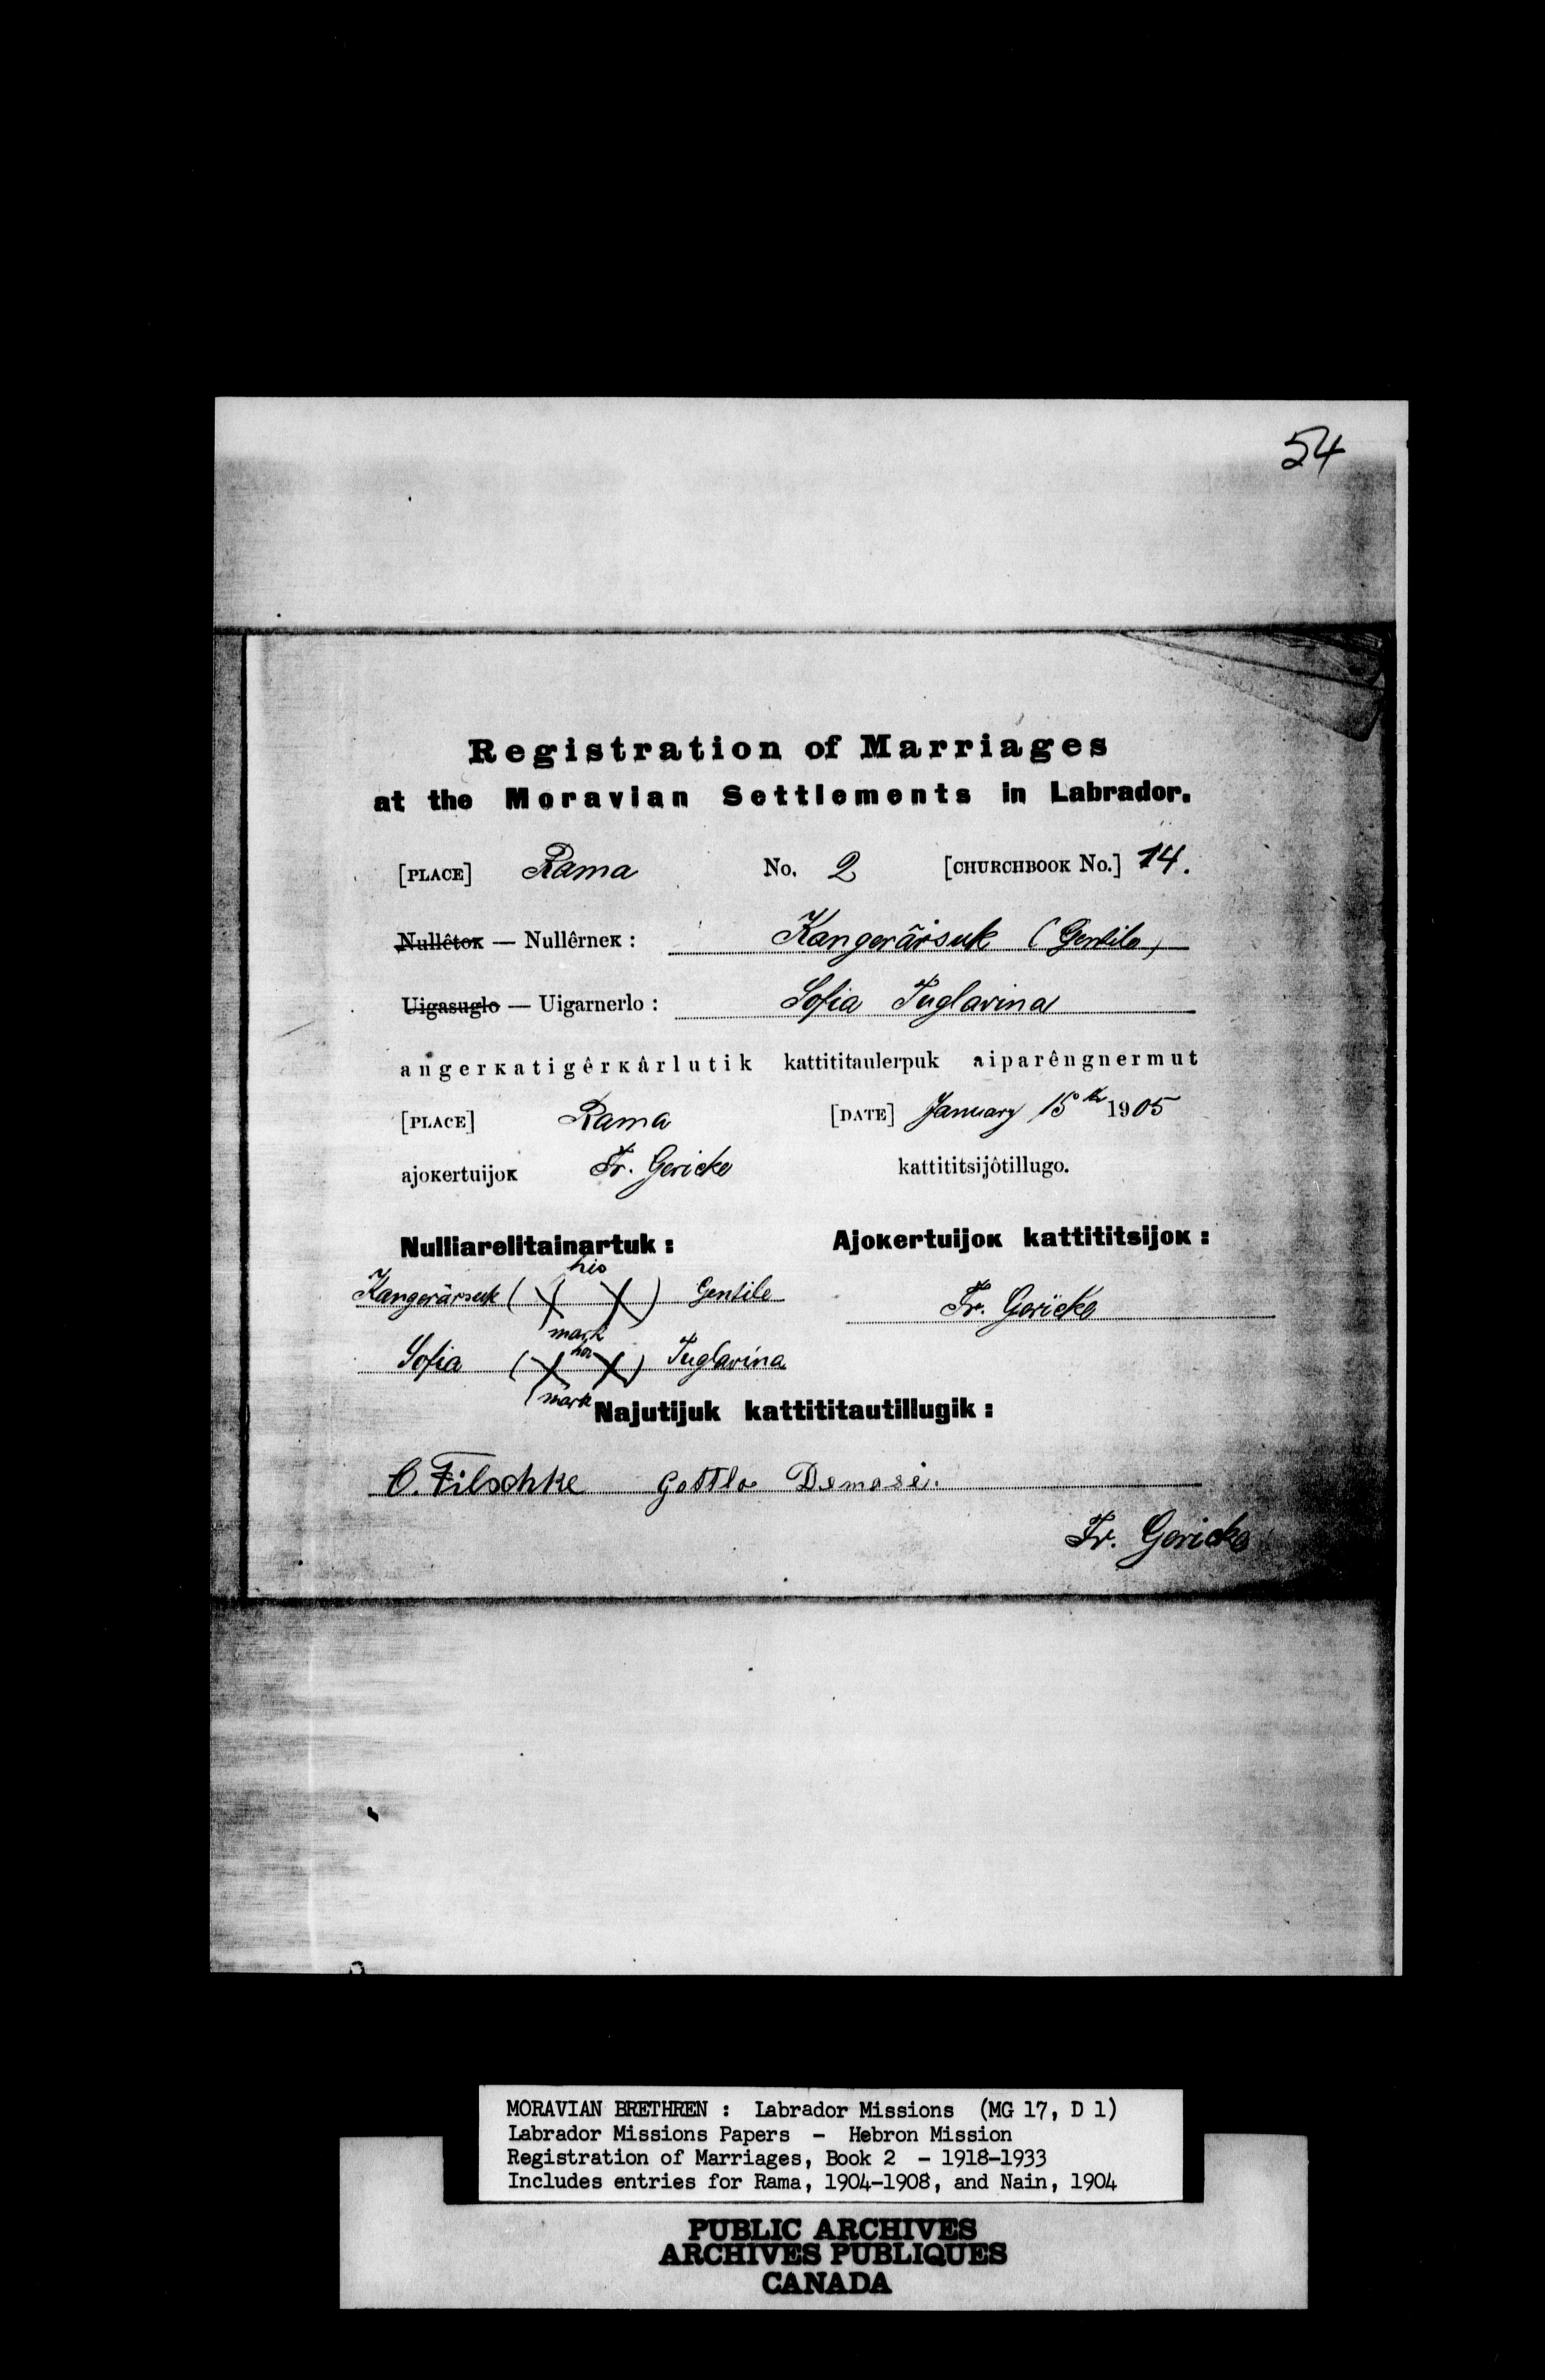 54
Registration of Marriages
at the Moravian Settlements in Labrador.
[PLACE] Rama No. 2 [CHURCHBOOK No.] 14.
Nullêtoĸ — Nullêrneĸ : Kangerârsuk (Gentile)
Uigasuglo — Uigarnerlo : Sofia Tuglavina
angerĸatigêrĸârlutik kattititaulerpuk aiparêngnermut
[PLACE] Rama [DATE] January 15th 1905
ajoĸertuijoĸ Fr. Gericke kattititsijôtillugo.
Nulliarelitainartuk : Ajoĸertuijoĸ kattititsijoĸ :
his
Kangerârsuk ( X X ) Gentile Fr. Gericke
mark
her
Sofia ( X X ) Tuglavina
mark
Najutijuk kattititautillugik :
O. Filschke Gottlo Demase.
Fr. Gericke
MORAVIAN BRETHREN : Labrador Missions (MG 17, D 1)
Labrador Missions Papers - Hebron Mission
Registration of Marriages, Book 2 - 1918-1933
Includes entries for Rama, 1904-1908, and Nain, 1904
PUBLIC ARCHIVES
ARCHIVES PUBLIQUES
CANADA